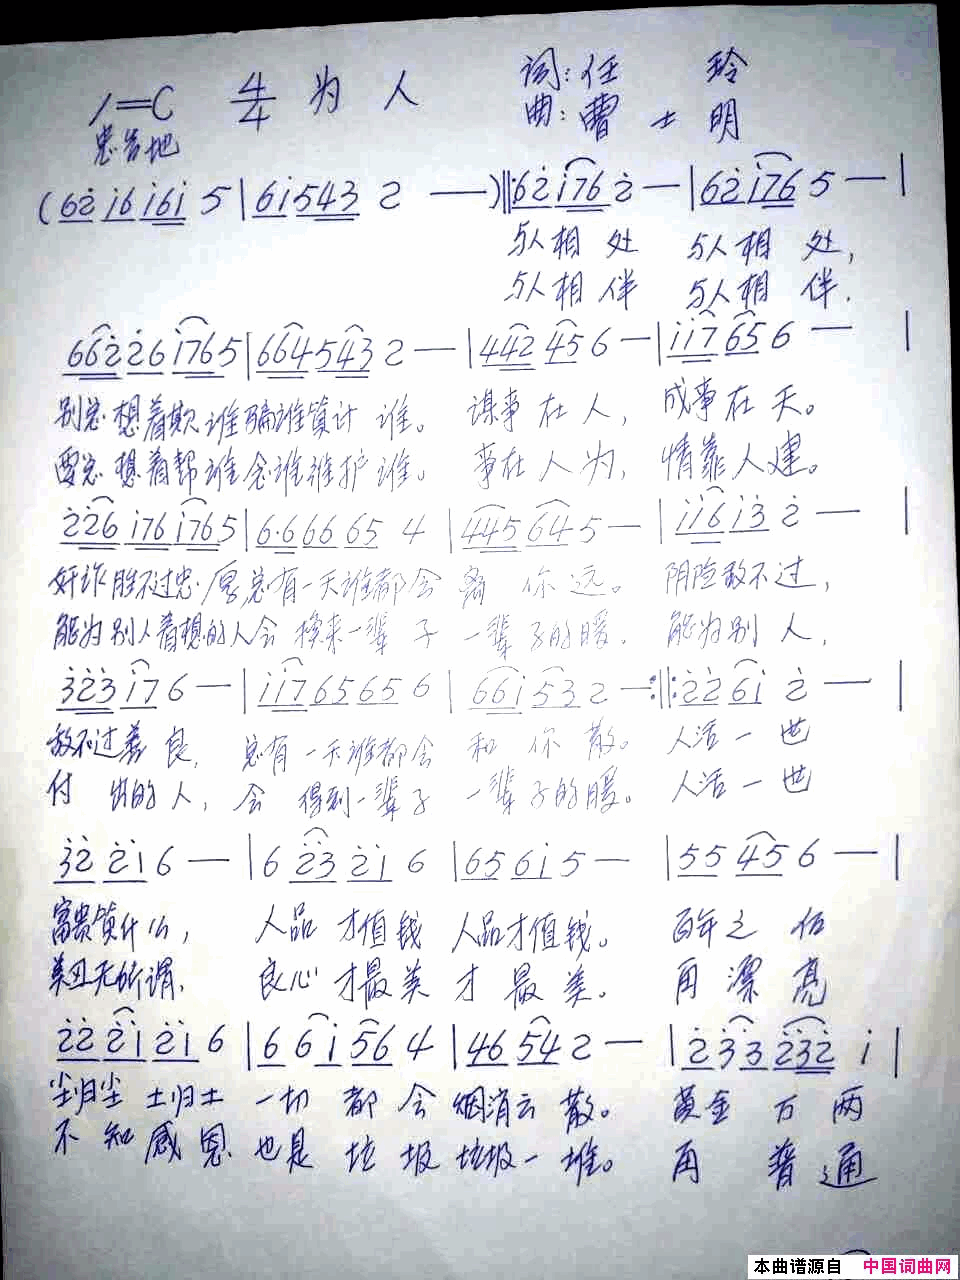 1=C 4/4 为人 词:任玲
曲:曹士明
忠告地
(62 16 161 5 | 61543 2 —)‖:62 176 2 — | 62 176 5 — |
与人相处 与人相处,
与人相伴 与人相伴.
662 26 1765 | 664 543 2 — | 442 45 6 — | 117 65 6 — |
别总想着欺谁骗谁算计谁。 谋事在人, 成事在天。
要总想着帮谁念谁维护谁。 事在人为, 情靠人建。
226 176 1765 | 6·6 66 65 4 | 445 64 5 — | 116 13 2 — |
奸诈胜不过忠厚总有一天谁都会离你远。 阴险敌不过,
能为别人着想的人会换来一辈子一辈子的暖. 能为别人,
323 17 6 — | 117 65 65 6 | 661 53 2 —:‖: 22 61 2 — |
敌不过善良, 总有一天谁都会和你散。 人活一世
付出的人, 会得到一辈子一辈子的暖。 人活一世
32 21 6 — | 6 23 21 6 | 65 61 5 — | 55 45 6 — |
富贵算什么, 人品才值钱 人品才值钱。 百年之后
美丑无所谓, 良心才最美 才最美. 再漂亮
22 21 21 6 | 6 61 56 4 | 46 54 2 — | 233 232 1 |
尘归尘 土归土 一切都会烟消云散。 黄金万两
不知感恩 也是垃圾垃圾一堆。 再普通
本曲谱源自 中国词曲网